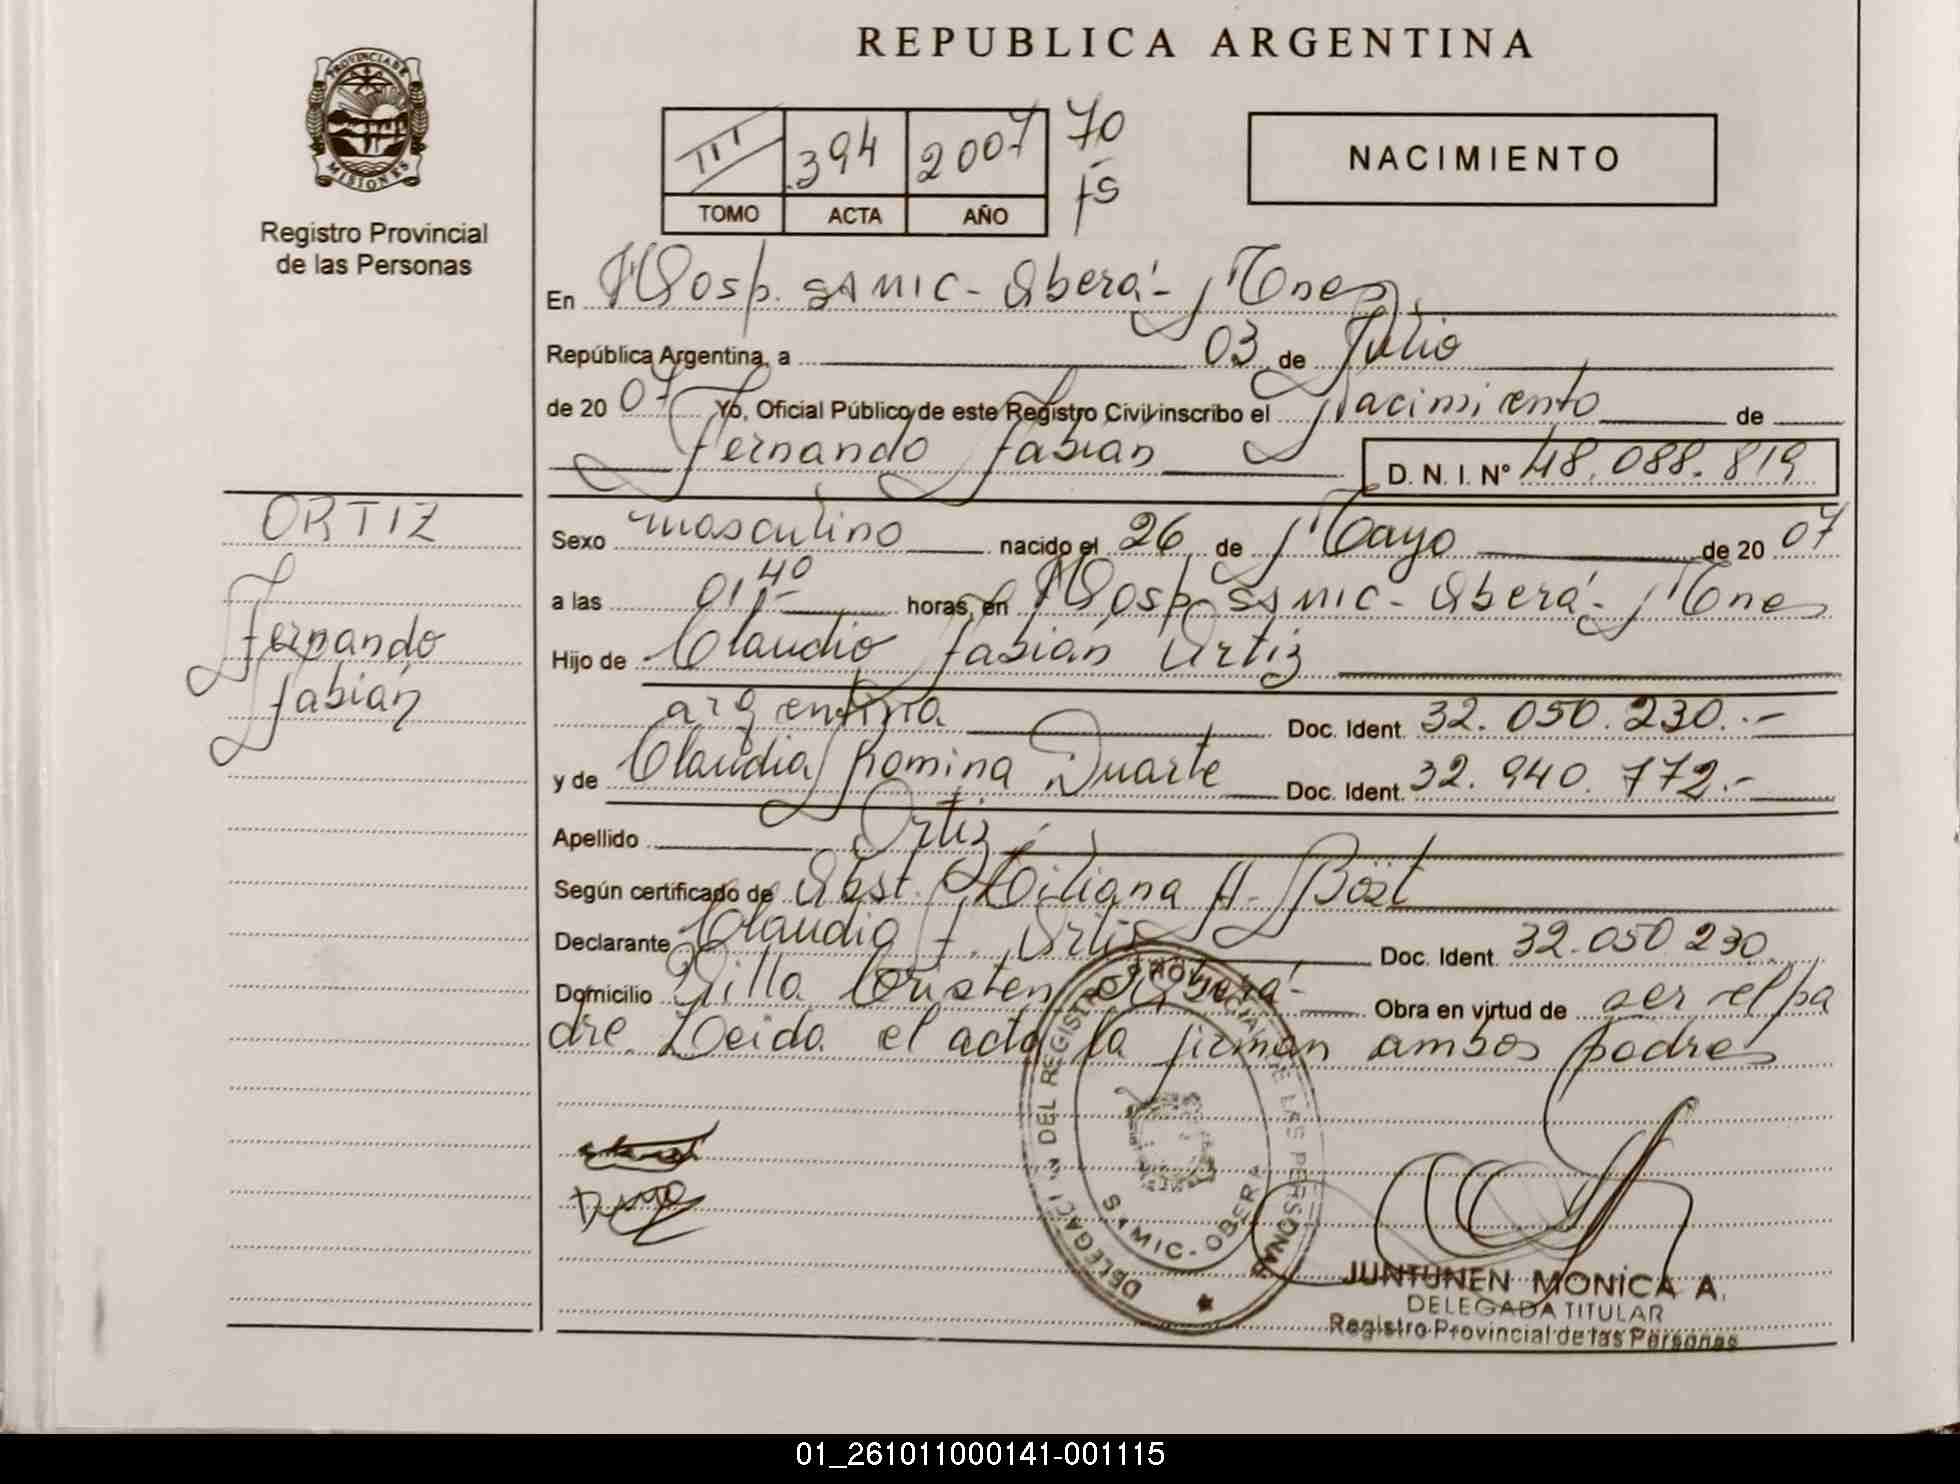 REPUBLICA ARGENTINA
PROVINCIA DE
MISIONES
Registro Provincial
de las Personas
III 394 2007 70
fs
TOMO ACTA AÑO
NACIMIENTO
En Hosp. SAMIC - Oberá - Mnes
República Argentina, a 03 de Julio
de 20 07 Yo, Oficial Público de este Registro Civil inscribo el Nacimiento de
Fernando Fabián D. N. I. Nº 48.088.819
ORTIZ
Fernando
Fabián
Sexo masculino nacido el 26 de Mayo de 20 07
a las 01,40 horas, en Hosp. SAMIC - Oberá - Mnes
Hijo de Claudio Fabián Ortiz
argentina Doc. Ident. 32.050.230.-
y de Claudia Romina Duarte Doc. Ident. 32.940.772.-
Apellido Ortiz
Según certificado de Obst. Liliana A. Böst
Declarante Claudio F. Ortiz Doc. Ident. 32.050.230
Domicilio Villa Cristen Oberá - Obra en virtud de ser el pa
dre. Leida el acta la firman ambos padres
DELEGACION DEL REGISTRO PROVINCIAL DE LAS PERSONAS
SAMIC - OBERA
JUNTUNEN MONICA A.
DELEGADA TITULAR
Registro Provincial de las Personas
01_261011000141-001115